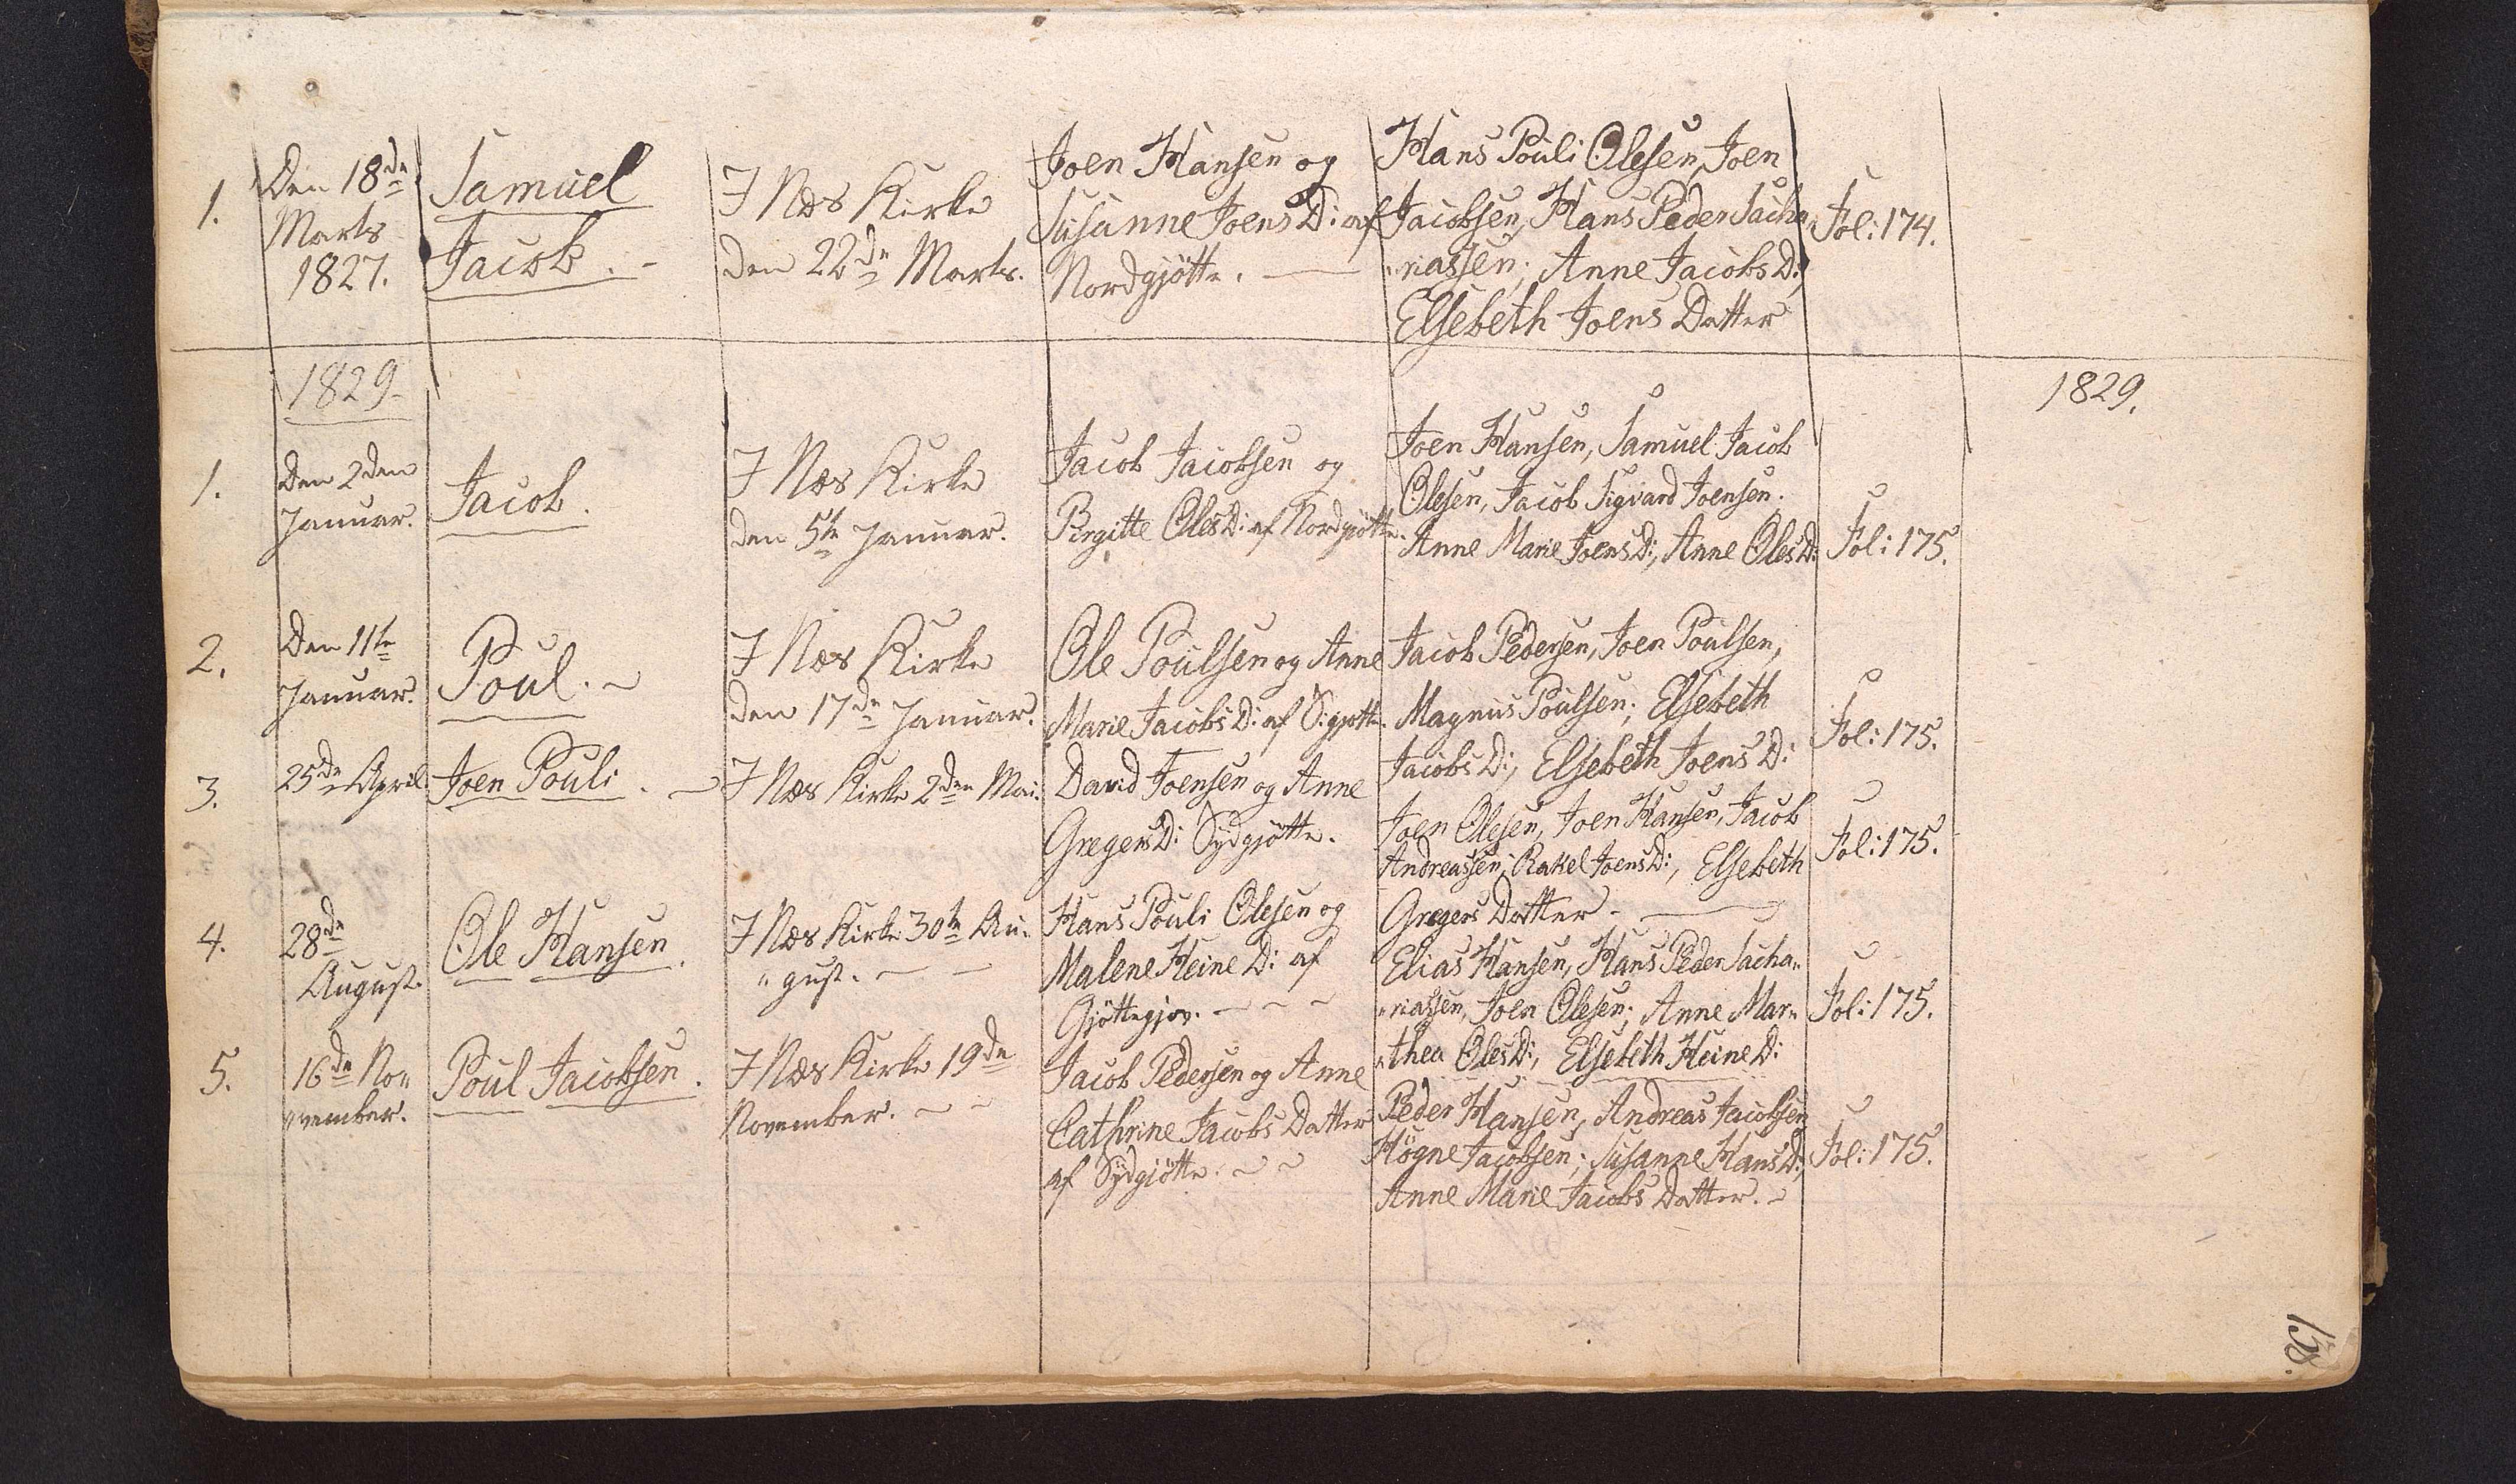 1.
Den 18de
Marts
1827.
Samuel
Jacob. -
I Næs Kirke
den 22de Marts.
Joen Hansen og
Susanne JoensD: af
Nordgjøtte. —
Hans Pouli Olesen, Joen
Jacobsen, Hans Peder Sacha„
„riassen; Anne JacobsD:,
Elsebeth Joens Datter
Fol: 174.
1829.
1829.
1.
Den 2den
Januar.
Jacob.
I Næs Kirke
den 5te Januar.
Jacob Jacobsen og
Birgitte OlesD: af Nordgjøtte.
Joen Hansen, Samuel Jacob
Olesen, Jacob Sigvard Joensen.
Anne Marie JoensD:, Anne OlesD:
Fol: 175.
2.
Den 11te
Januar.
Poul. ~
I Næs Kirke
den 17de Januar.
Ole Poulsen og Anne
Marie JacobsD: af S:gjøtte.
Jacob Pedersen, Joen Poulsen,
Magnus Poulsen; Elsebeth
JacobsD:, Elsebeth JoensD:
Fol: 175.
3.
25de April
Joen Pouli. ~
I Næs Kirke 2den Mai.
David Joensen og Anne
GregersD: Sydgjøtte.
Joen Olesen, Joen Hansen, Jacob
Andreassen; Rakel JoensD:, Elsebeth
Gregers Datter. —
Fol: 175.
4.
28de
August.
Ole Hansen.
I Næs Kirke 30te Au„
„gust. — —
Hans Pouli Olesen og
Malene HeineD: af
Gjøttegjov. — ~ ~
Elias Hansen, Hans Peder Sacha„
„riassen, Joen Olesen; Anne Mar„
„thea OlesD:, Elsebeth HeineD:
Fol: 175.
5.
16de No„
„vember.
Poul Jacobsen.
I Næs Kirke 19de
November. ~ ~
Jacob Pedersen og Anne
Cathrine Jacobs Datter
af Sydgjøtte. ~ ~
Peder Hansen, Andreas Jacobsen,
Høgne Jacobsen; Susanne HansD:,
Anne Marie Jacobs Datter. ~
Fol: 175.
158.